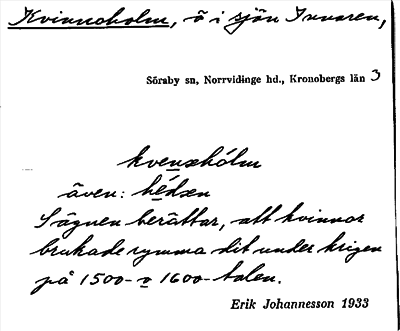 Kvinnoholm, ö i sjön Innaren,
Söraby sn, Norrvidinge hd., Kronobergs län 3
kvenahólm
även:
Sägnen berättar, att kvinnor
brukade rymma dit under krigen
på 1500- o 1600-talen.
Erik Johannesson 1933